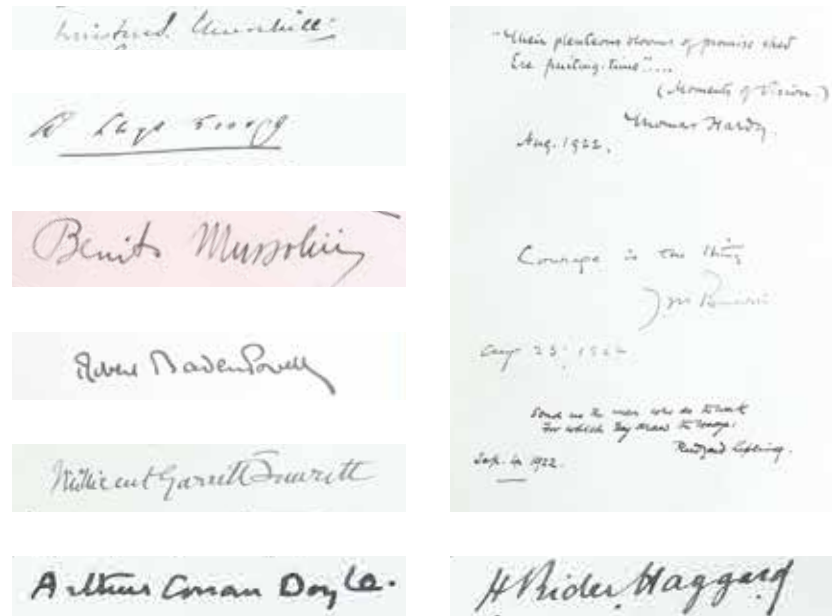 Winston S. Churchill
D Lloyd George
Benito Mussolini
Robert Baden Powell
Millicent Garrett Fawcett
Arthur Conan Doyle.
"Their plenteous blooms of promise shed
Ere fruiting-time"....
(Moments of Vision.)
Thomas Hardy.
Aug. 1922.
Courage is the thing
J M Barrie
Aug 23, 1922
Send us the men who do the work
For which they draw the wage.
Rudyard Kipling.
Sep. 1922.
H Rider Haggard